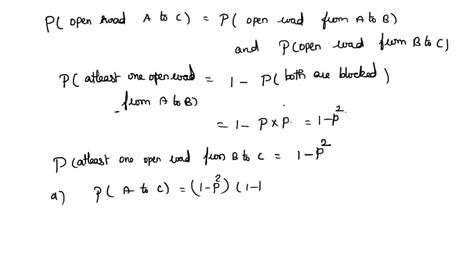 P( open road A to C) = P( open road from A to B)
and P(open road from B to C)
P(atleast one open road from A to B) = 1 - P( both are blocked)
= 1 - P x P. = 1-p²
P(atleast one open road from B to C = 1-p²
a) P( A to C) = (1-p²) (1-1